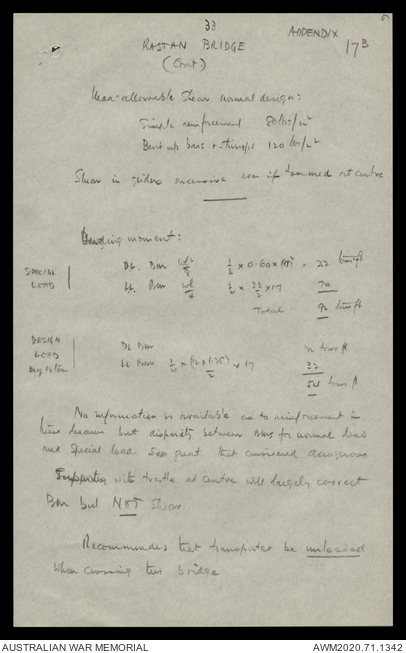 33
APPENDIX
17B
RASTAN BRIDGE
(Cont)
Max. allowable Shear normal design:
Simple reinforcement 80 lbs/in²
Bent up bars + stirrups 120 lbs/in²
Shear in girders excessive even if trimmed at centre
Bending moment:
SPECIAL LOAD
DL. Bm wl²/8 ½ x 0.60 x 17² = 22 tons ft
LL. Bm wl/4 ½ x 33/2 x 17 70
Total 92 tons ft
DESIGN LOAD
DL Bm 22 tons ft
LL Bm ½ x (12 x 1.25)/2 x 17 32
54 tons ft
No information is available as to reinforcement in
these beams but disparity between BMs for normal load
and special load. So great that considered dangerous
Supporting with trestle at centre will largely correct
Bm but NOT shear
Recommended that transporter be unloaded
when crossing this bridge
AUSTRALIAN WAR MEMORIAL
AWM2020.71.1342